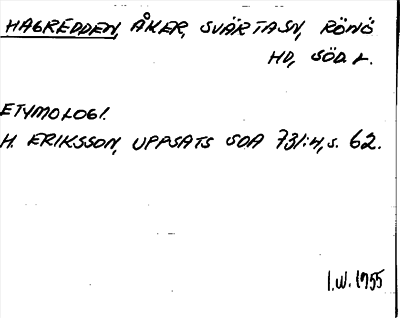 HAGREDDEN, ÅKER, SVÄRTA SN, RÖNÖ
HD, SÖD. L.
ETYMOLOGI.
H. ERIKSSON, UPPSATS SOA 731:4, s. 62.
I.W. 1955